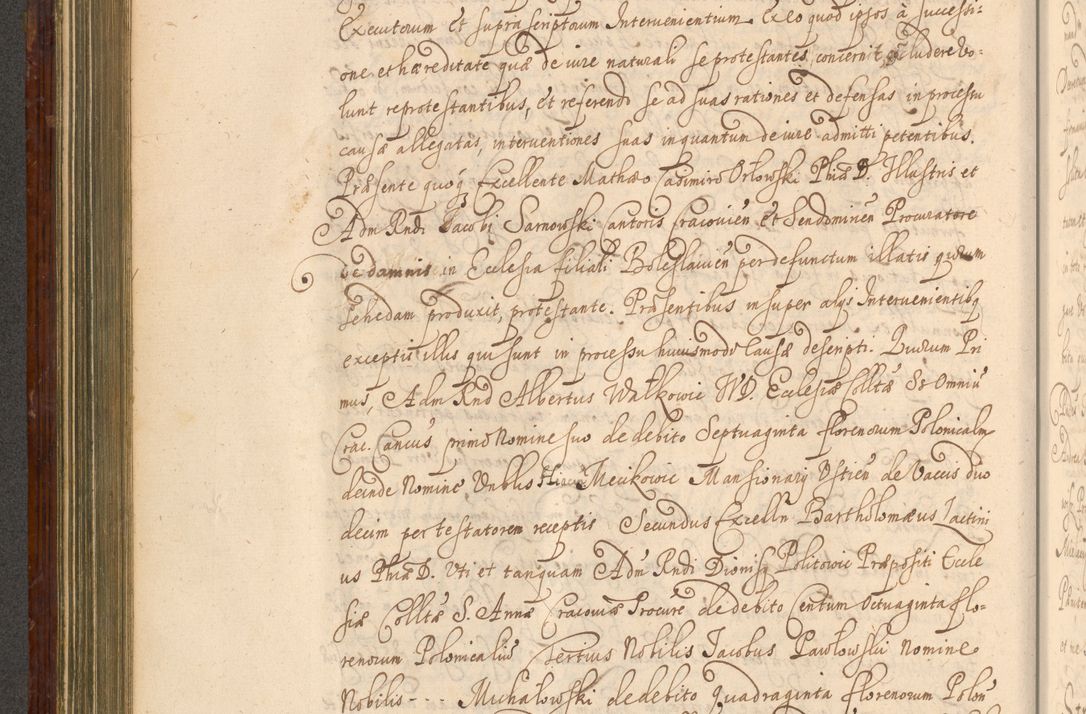 Executorum et supra scriptorum Intervenientium. Ex eo quod ipsos à successi-
one et hæreditate quæ de iure naturali se protestantes, concernit, excludere vo-
lunt reprotestantibus, et referendo se ad suas rationes et defensas in processu
causæ allegatas, interventiones suas inquantum de iure admitti petentibus.
Præsente quoq3 Excellente Mathæo Casimiro Orłowski Phiæ D. Illustris et
Adm Rndi Jacobi Sarnowski Cantoris Cracovien̄ et Sendomirien̄ Procuratore
de damnis in Ecclesia filiali Boleslavien̄ per defunctum illatis quorum
schedam produxit, protestante. Præsentibus insuper alijs Intervenientibq
exceptis illis qui sunt in processu huiusmodi causæ descripti. Quorum Pri
mus, Adm Rnd Albertus Wałkowic VD. Ecclesiæ Colltæ SS Omniū
Crac. Cancus, primo Nomine suo de debito Septuaginta florenorum Polonicalm
deinde Nomine Vnblis Mecikowic Mansionarij Vstien̄ de Vaccis duo
decim per testatorem receptis Secundus Excelln̄ Bartholomæus Lactini
us Phiæ D. Vti et tanquam Adm Rndi Dionisij Politowic Præpositi Eccle
siæ Colltæ S. Annæ Cracoviæ Procure de debito Centum Octuaginta flo-
renorum Polonicaliū Tertius Nobilis Jacobus Pawłowski Nomine
Nobilis - - - Michałowski de debito quadraginta florenorum Polon̄